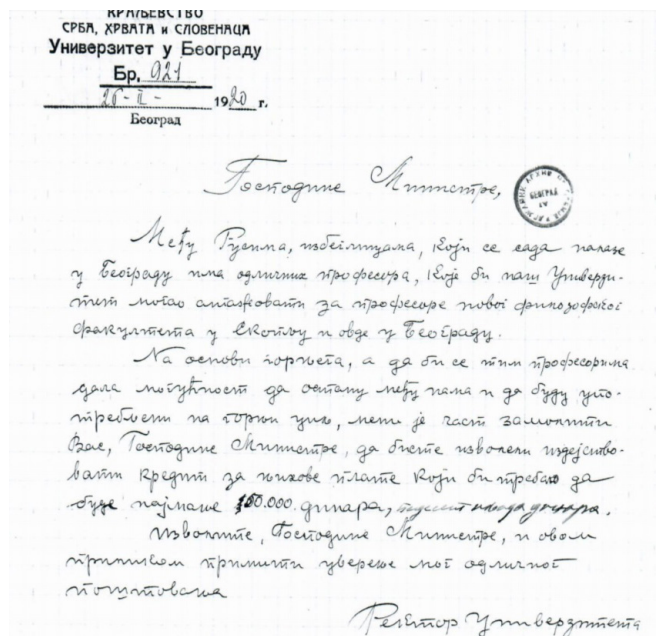 КРАЉЕВСТВО
СРБА, ХРВАТА и СЛОВЕНАЦА
Универзитет у Београду
Бр. 921
1920 г.
Београд
Господине Министре,
БЕОГРАД
Међу Русима, избеглицама, који се сада налазе
у Београду има одличних професора, које би наш Универзи-
тет могао ангажовати за професоре новог филозофског
факултета у Скопљу и овде у Београду.
На основи горњега, а да би се тим професорима
дала могућност да остану међу нама и да буду упо-
требљени на горњи циљ, мени је част замолити
Вас, Господине Министре, да бисте изволели издејство-
вати кредит за њихове плате који би требао да
буде најмање 100.000 динара,
Изволите, Господине Министре, и овом
приликом примити уверење мог одличног
поштовања
Ректор Универзитета